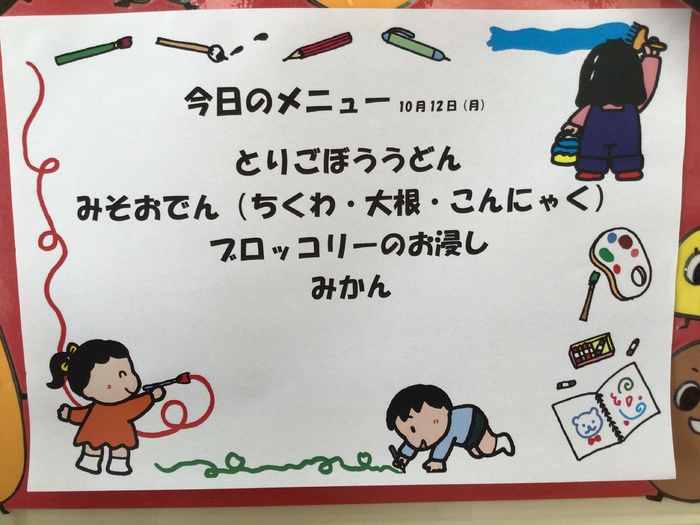 今日のメニュー 10月12日(月)
とりごぼううどん
みそおでん(ちくわ・大根・こんにゃく)
ブロッコリーのお浸し
みかん